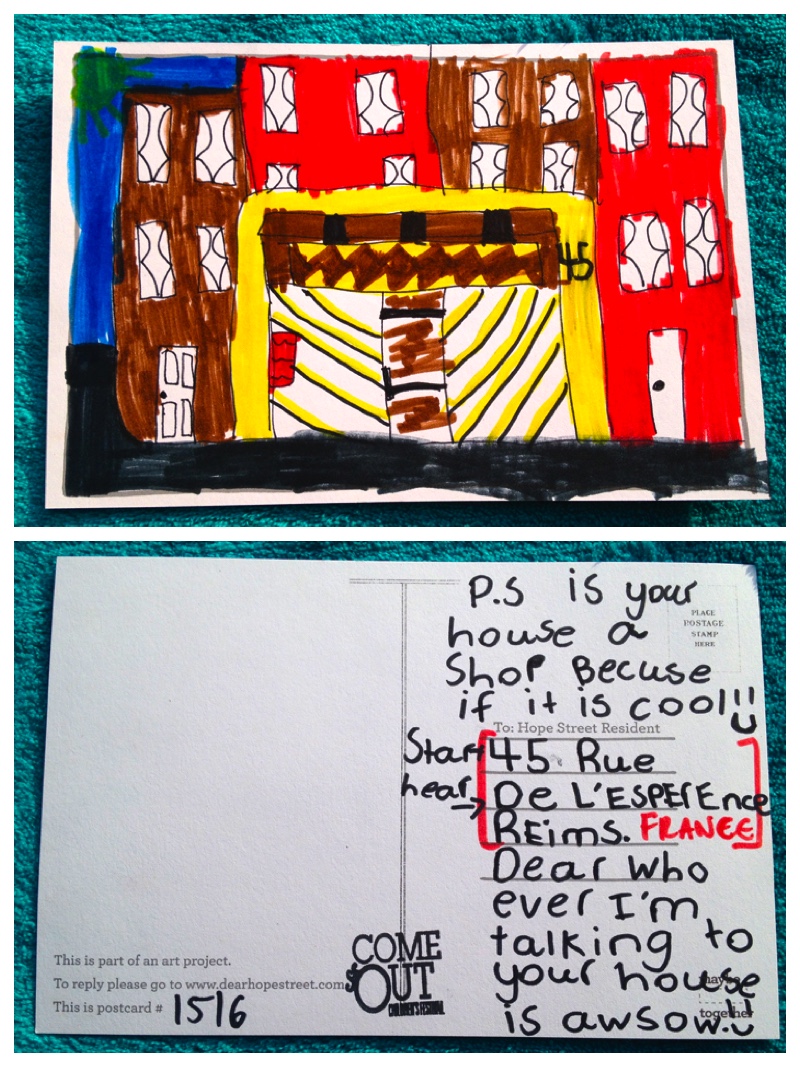 45
P.S is your
house a
Shop Becuse
if it is cool!!
PLACE
POSTAGE
STAMP
HERE
To: Hope Street Resident
Start
hear
45 Rue
De L'ESPEREnce
REims. FRANCE
Dear who
ever I'm
talking to
your house
is awsow!!
maybe
together
This is part of an art project.
To reply please go to www.dearhopestreet.com
This is postcard # 1516
COME
OUT
CHILDREN'S FESTIVAL